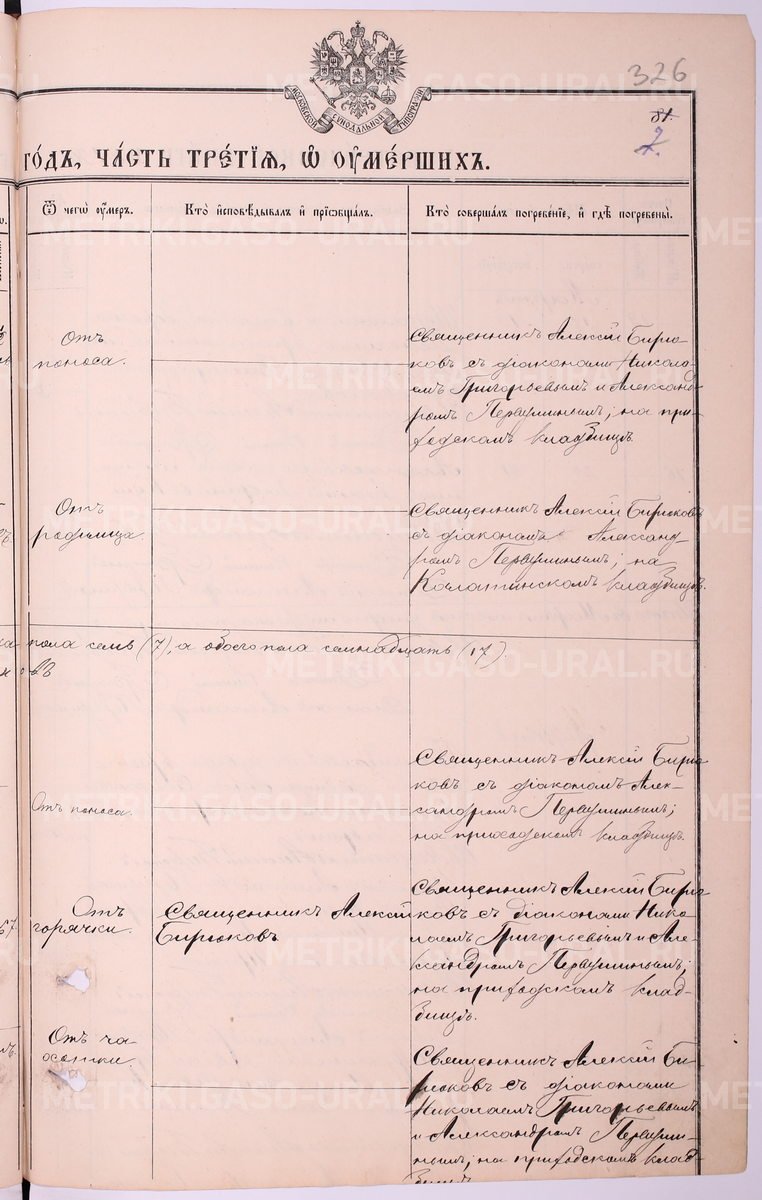 326
МОСКОВСКОЙ СѴНОДАЛЬНОЙ ТИПОГРАФІИ
81.
2
го́дъ, ча́сть тре́тїѧ, ѡ҆ ᲂу҆ме́ршихъ.
Ѿ чегѡ̀ ᲂу҆́меръ.
Кто̀ и҆сповѣ́дывалъ и҆ прїѡбща́лъ.
Кто̀ соверша́лъ погребе́нїе, и҆ гдѣ̀ погребены̀.
Отъ
поноса.
Священникъ Алексій Бирю-
ковъ съ діаконами Никола-
емъ Григорьевымъ и Александ-
ромъ Первушинымъ; на при-
ходскомъ кладбищѣ.
Отъ
родимца.
Священникъ Алексій Бирюковъ
съ діакономъ Александ-
ромъ Первушинымъ; на
Калатинскомъ кладбищѣ.
пола семь (7), а обоего пола семнадцать (17).
Отъ поноса.
Священникъ Алексій Бирю-
ковъ съ діакономъ Алек-
сандромъ Первушинымъ;
на приходскомъ кладбищѣ.
Отъ
горячки.
Священникъ Алексій
Бирюковъ.
Священникъ Алексій Бирю-
ковъ съ діаконами Нико-
лаемъ Григорьевымъ и Але-
ксандромъ Первушинымъ;
на приходскомъ клад-
бищѣ.
Отъ ча-
хотки.
Священникъ Алексій Би-
рюковъ съ діаконами
Николаемъ Григорьевымъ
и Александромъ Первуши-
нымъ; на приходскомъ клад-
METRIKI.GASO-URAL.RU